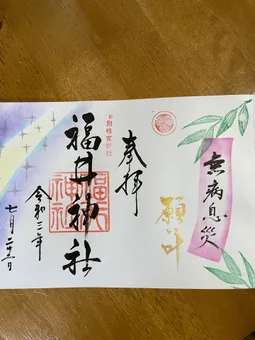 無病息災
願い叶
奉拝
福井神社
福井神社
令和三年
七月二十二日